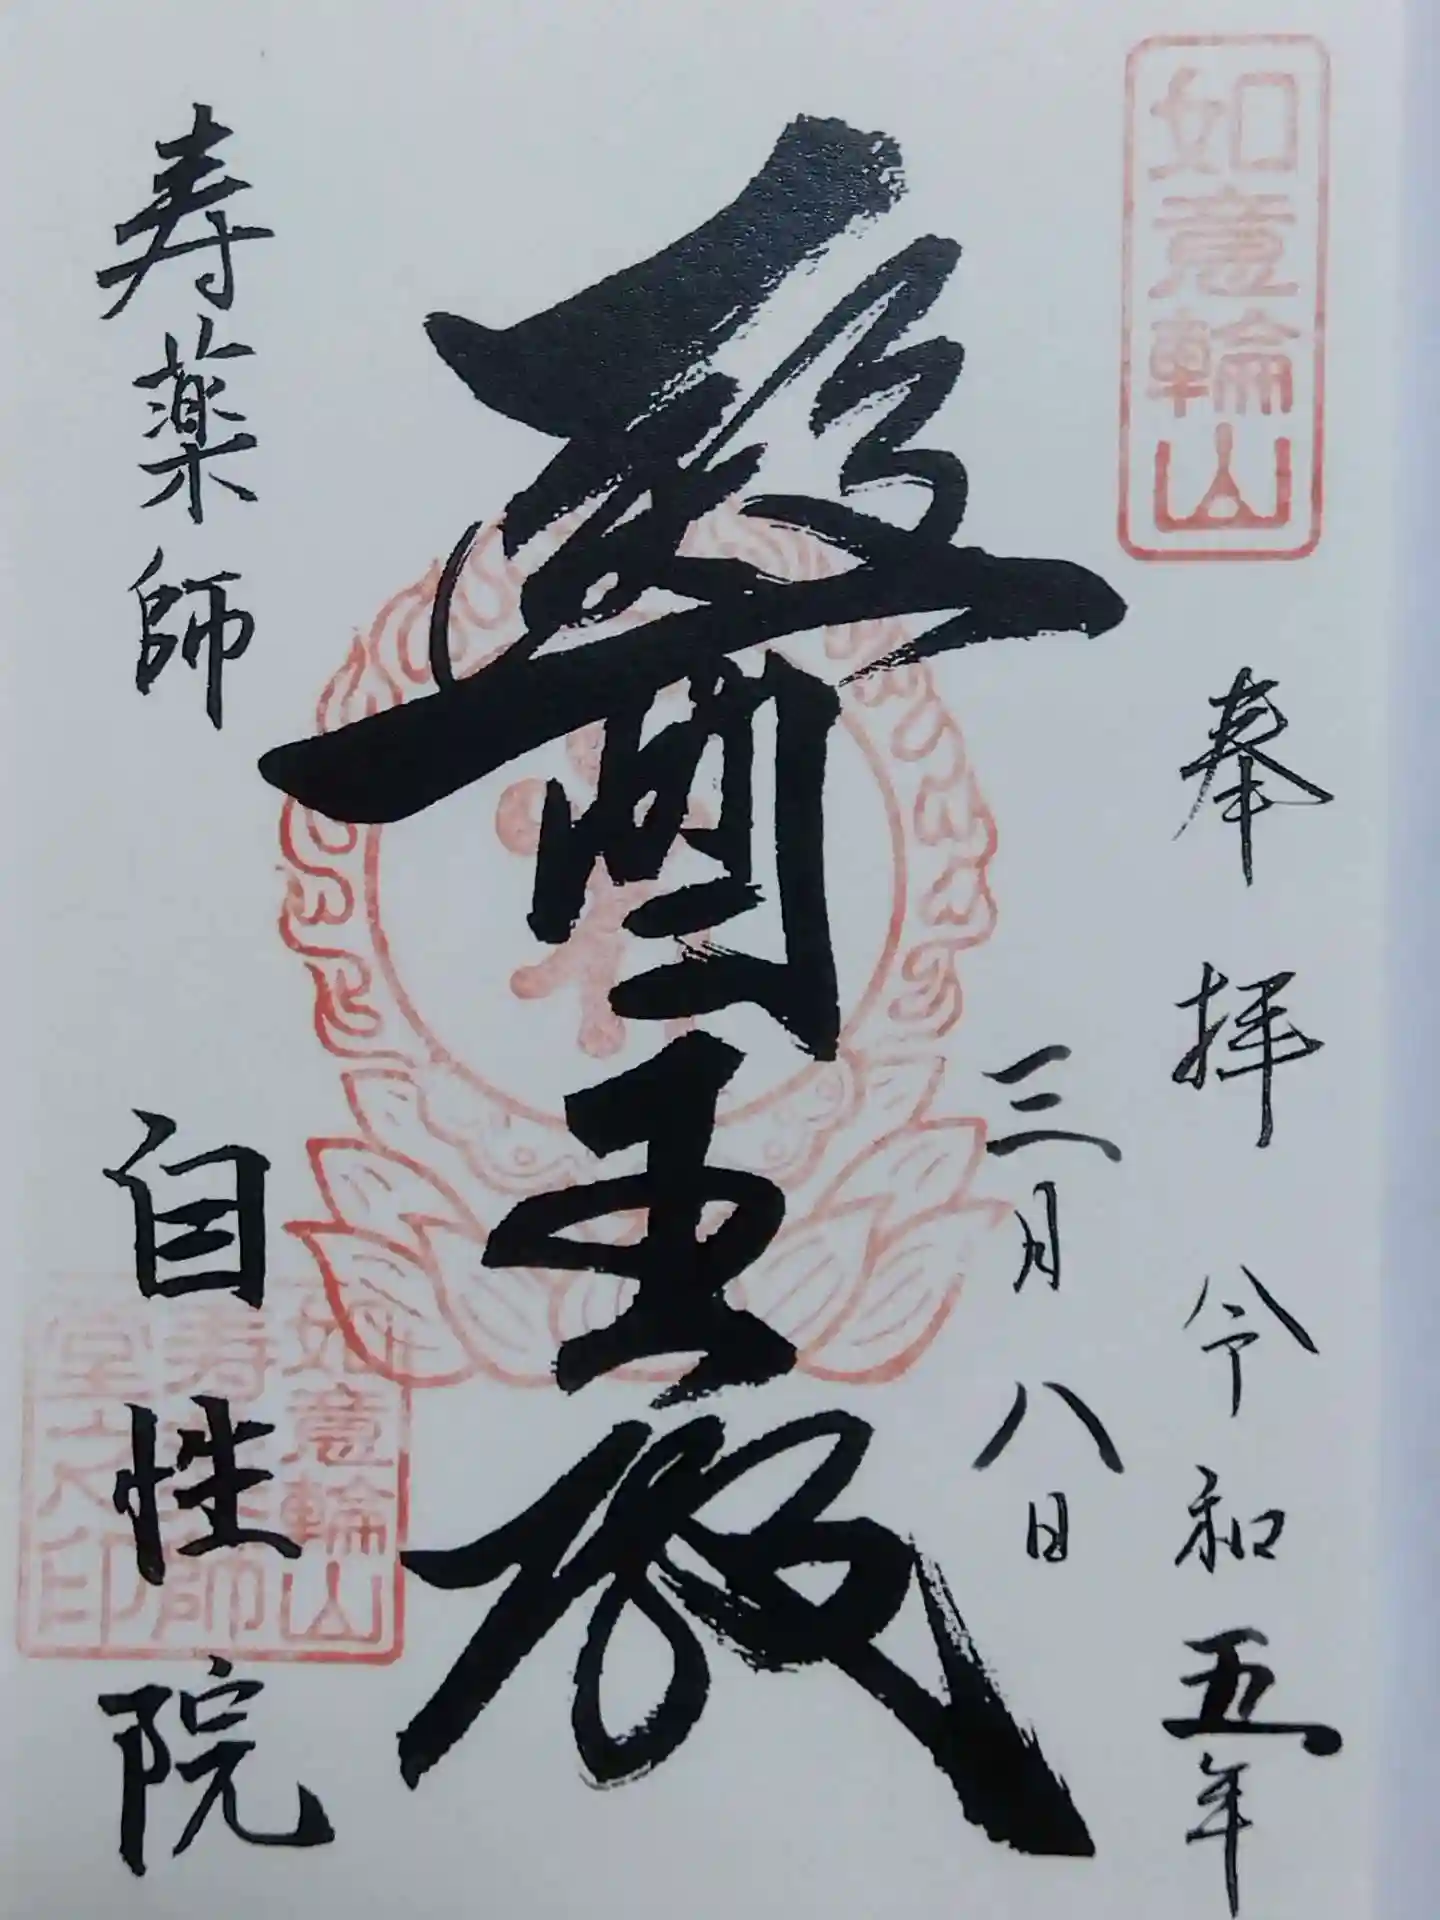 如意輪山
奉拝 令和五年
三月八日
醫王殿
寿薬師
自性院
如意輪山
寿薬師
堂之印